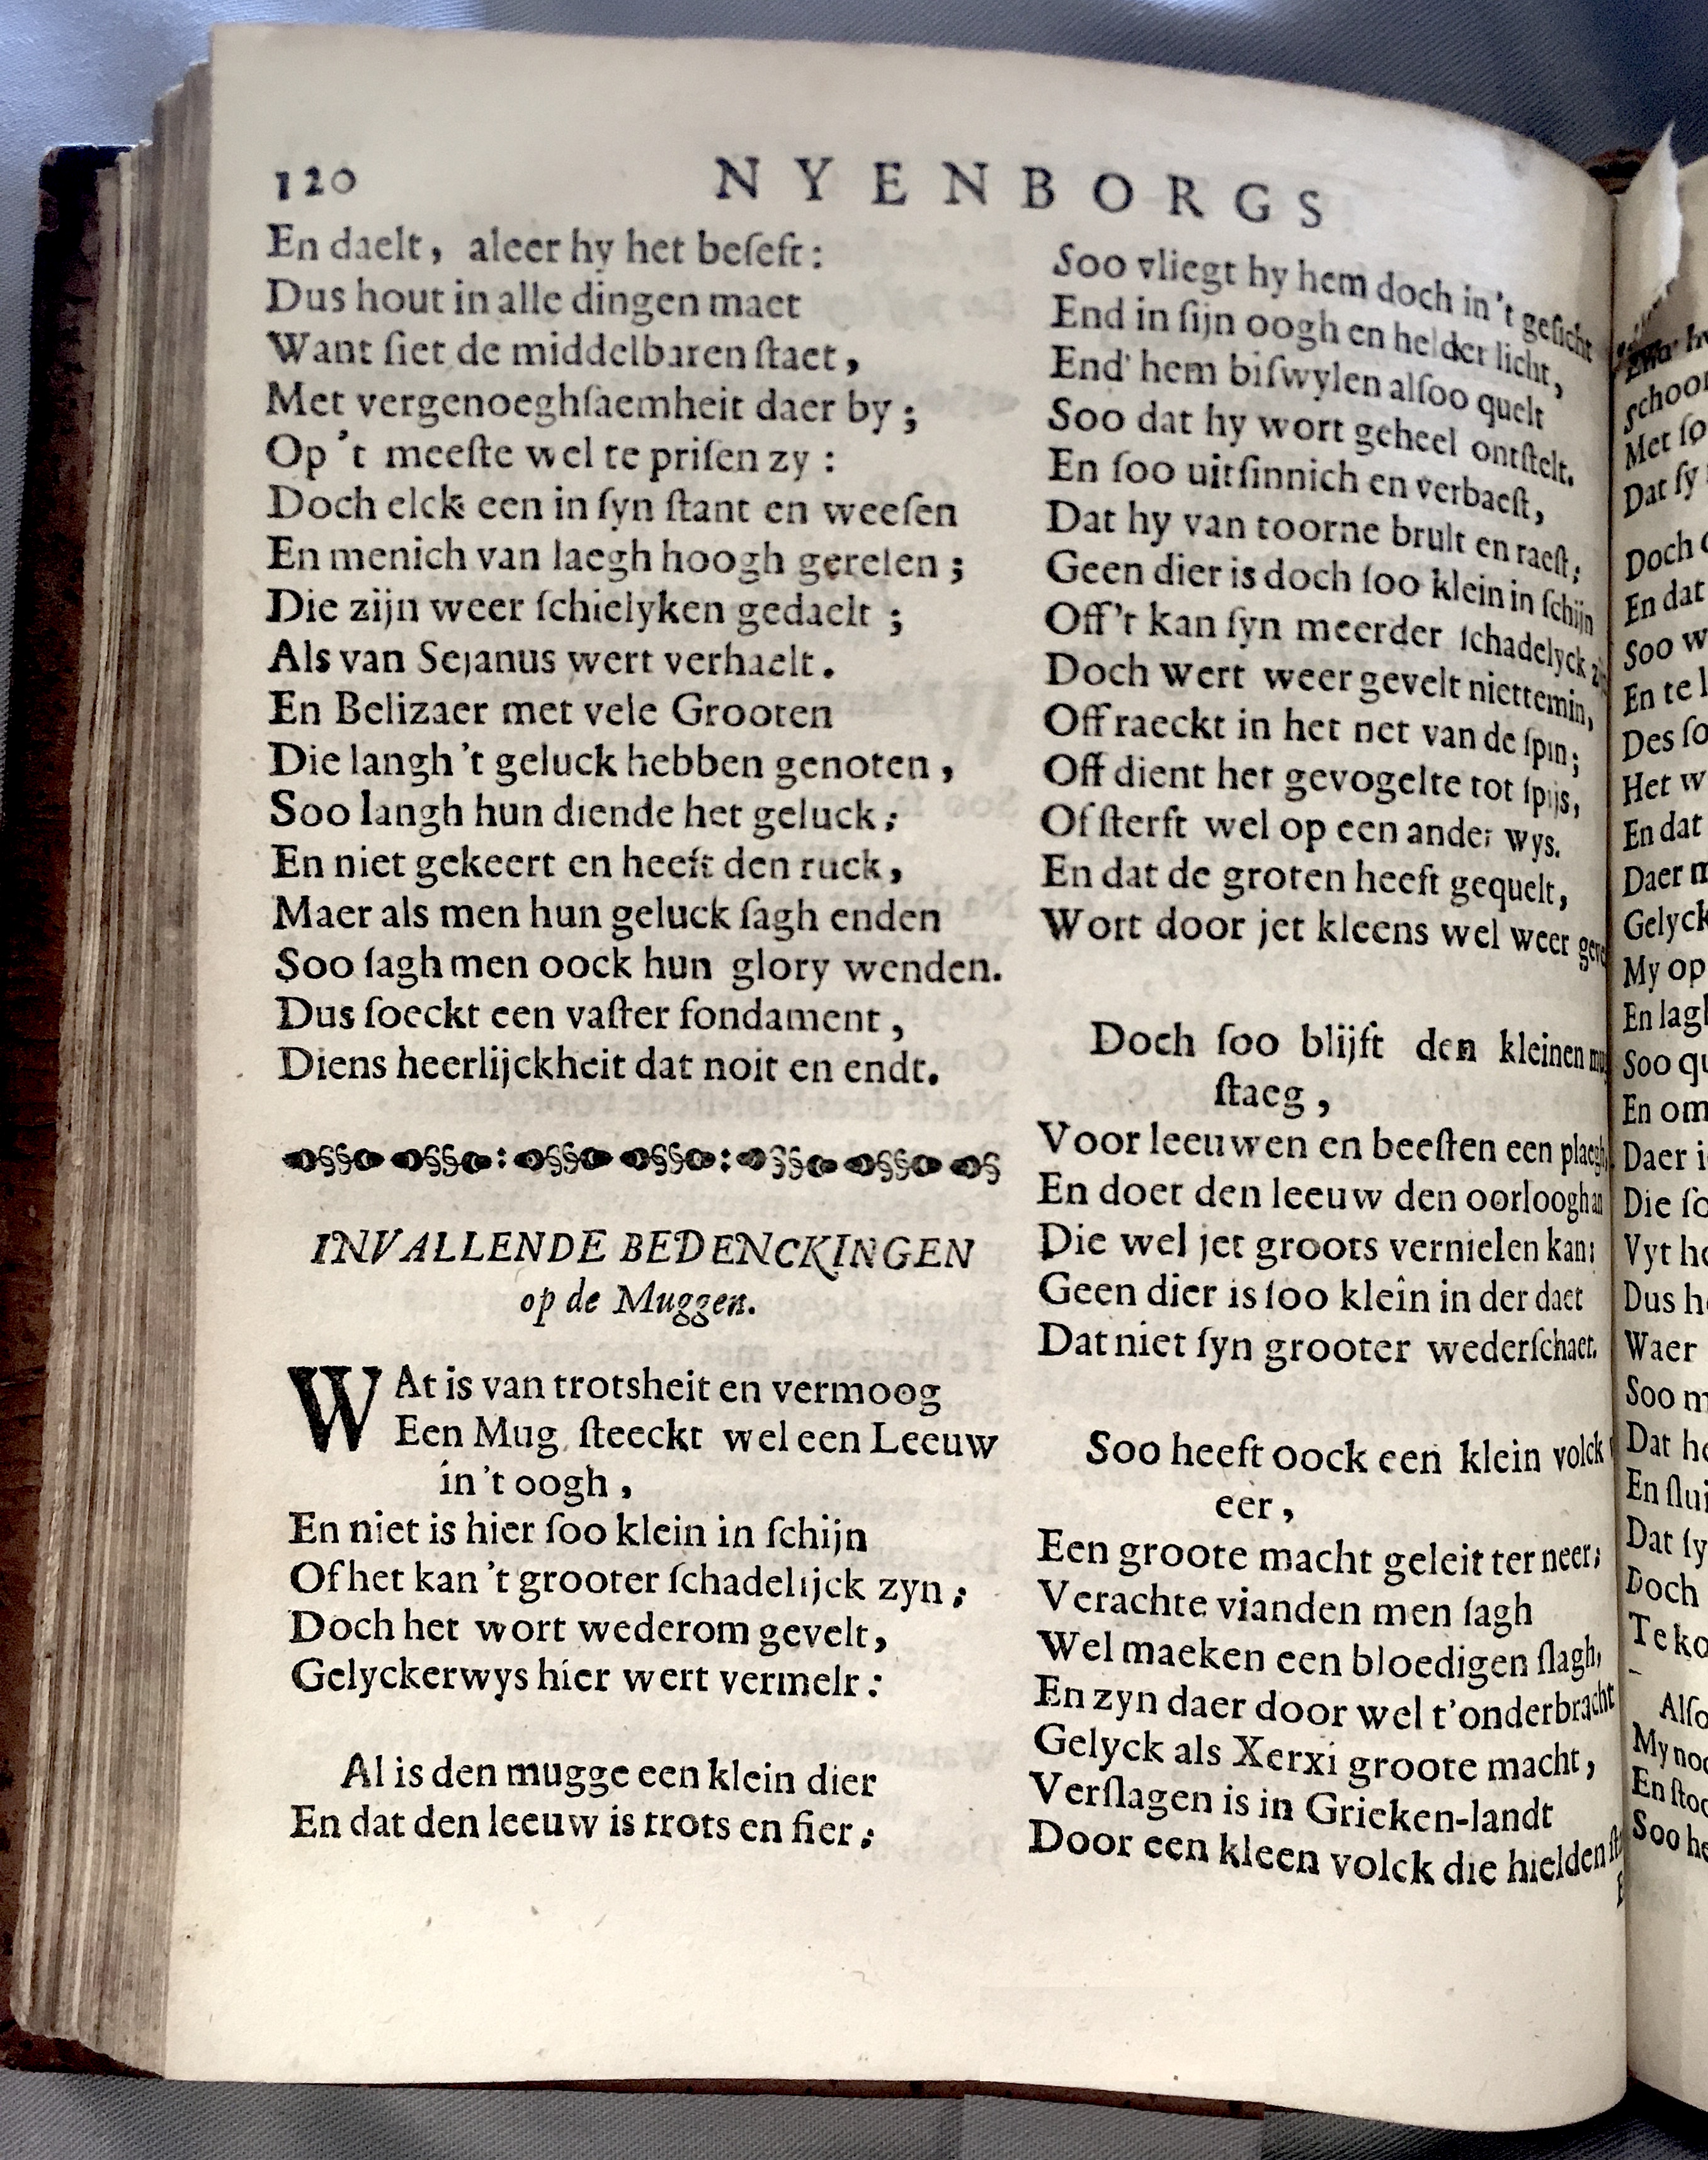 120 NYENBORGS
En daelt, aleer hy het beſeft:
Dus hout in alle dingen maet
Want ſiet de middelbaren ſtaet,
Met vergenoeghſaemheit daer by;
Op 't meeſte wel te priſen zy:
Doch elck een in ſyn ſtant en weeſen
En menich van laegh hoogh gereſen;
Die zijn weer ſchielyken gedaelt;
Als van Sejanus wert verhaelt.
En Belizaer met vele Grooten
Die langh 't geluck hebben genoten,
Soo langh hun diende het geluck;
En niet gekeert en heeft den ruck,
Maer als men hun geluck ſagh enden
Soo ſagh men oock hun glory wenden.
Dus ſoeckt een vaſter fondament,
Diens heerlijckheit dat noit en endt.
INVALLENDE BEDENCKINGEN
op de Muggen.
WAt is van trotsheit en vermoog
Een Mug ſteeckt wel een Leeuw
in 't oogh,
En niet is hier ſoo klein in ſchijn
Of het kan 't grooter ſchadelijck zyn;
Doch het wort wederom gevelt,
Gelyckerwys hier wert vermelt:
Al is den mugge een klein dier
En dat den leeuw is trots en fier;
Soo vliegt hy hem doch in 't geſicht
End in ſijn oogh en helder licht,
End' hem biſwylen alſoo quelt
Soo dat hy wort geheel ontſtelt.
En ſoo uitſinnich en verbaeſt,
Dat hy van toorne brult en raeſt;
Geen dier is doch ſoo klein in ſchijn
Off't kan ſyn meerder ſchadelyck
Doch wert weer gevelt niettemin,
Off raeckt in het net van de ſpin;
Off dient het gevogelte tot ſpijs,
Of ſterft wel op een ander wys.
En dat de groten heeft gequelt,
Wort door jet kleens wel weer
Doch ſoo blijft den kleinen
ſtaeg,
Voor leeuwen en beeſten een plaegh,
En doet den leeuw den oorloogh an
Die wel jet groots vernielen kan;
Geen dier is ſoo klein in der daet
Dat niet ſyn grooter wederſchaet.
Soo heeft oock een klein volck
eer,
Een groote macht geleit ter neer;
Verachte vianden men ſagh
Wel maeken een bloedigen ſlagh,
En zyn daer door wel t'onderbracht
Gelyck als Xerxi groote macht,
Verſlagen is in Grieken-landt
Door een kleen volck die hielden
schoon
Met
Dat ſy
Doch
En dat
Soo
En te
Des
Het
En dat
Daer
Gelyck
My op
En
Soo
En om
Daer
Die
Vyt
Dus
Waer
Soo
Dat
En
Dat
Doch
Te
My
En
Soo